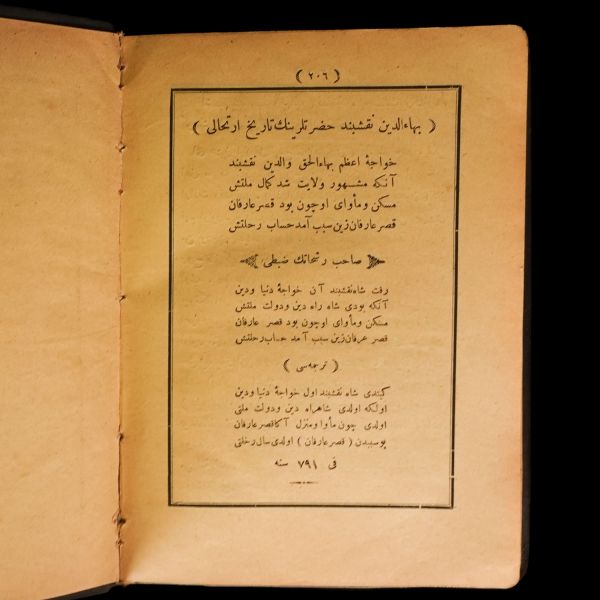 ( ٢٠٦ )
( بهاءالدین نقشبند حضرتلرینك تاریخ ارتحالی )
خواجهٔ اعظم بهاءالحق والدین نقشبند
آنکه مشهور ولایت شد کمال ملتش
مسکن ومأوای اوچون بود قصر عارفان
قصر عارفان زین سبب آمد حساب رحلتش
صاحب رشحاتك ضبطی
رفت شاه نقشبند آن خواجهٔ دنیا ودین
آنکه بودی شاه راه دین ودولت ملتش
مسکن ومأوای اوچون بود قصر عارفان
قصر عرفان زین سبب آمد حساب رحلتش
( ترجمه‌سی )
کیتدی شاه نقشبند اول خواجهٔ دنیا ودین
اولکه اولدی شاهراه دین ودولت ملتی
اولدی چون مأوا ومنزل آکا قصر عارفان
بوسببدن ( قصر عارفان ) اولدی سال رحلتی
فی ٧٩١ سنه